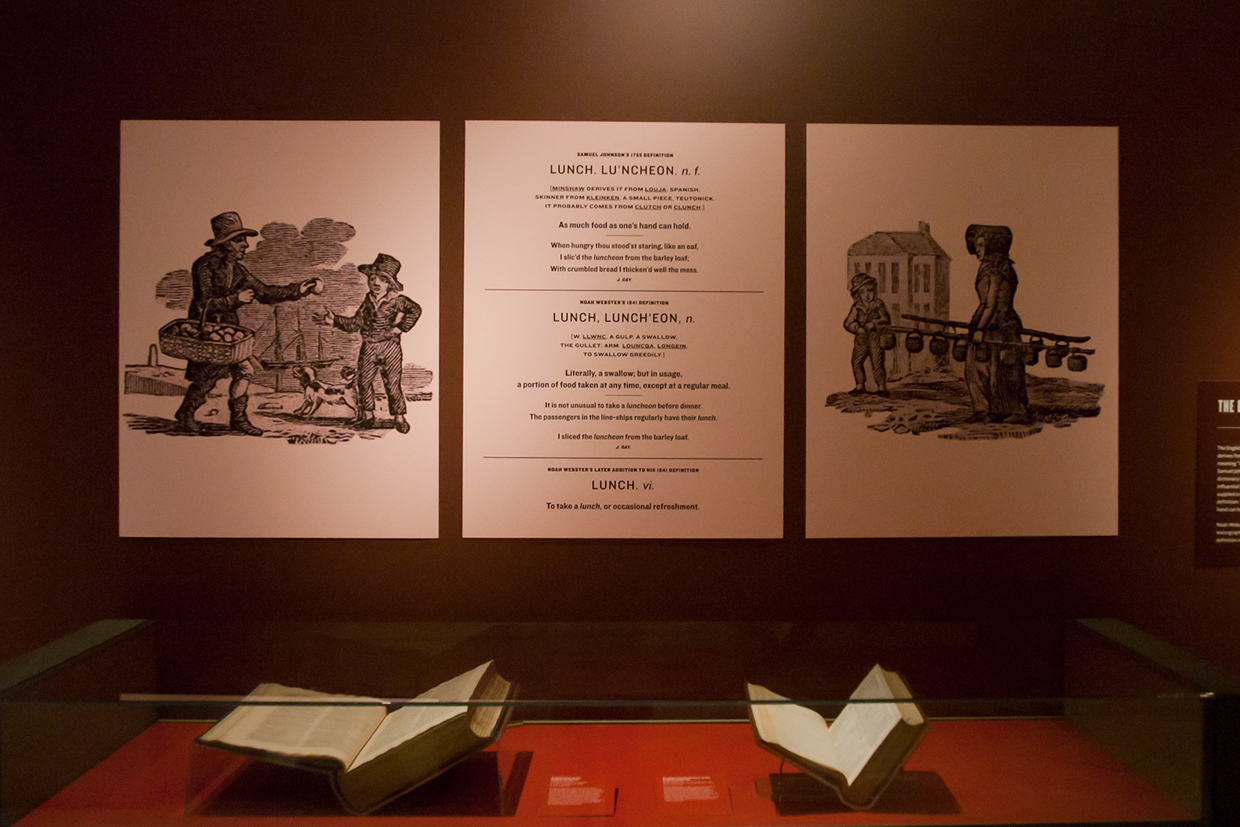 SAMUEL JOHNSON'S 1755 DEFINITION
LUNCH. LU'NCHEON. n. f.
[MINSHAW DERIVES IT FROM LOUJA, SPANISH;
SKINNER FROM KLEINKEN, A SMALL PIECE, TEUTONICK.
IT PROBABLY COMES FROM CLUTCH OR CLUNCH.]
As much food as one's hand can hold.
When hungry thou stood'st staring, like an oaf,
I slic'd the luncheon from the barley loaf;
With crumbled bread I thicken'd well the mess.
J. GAY.
NOAH WEBSTER'S 1841 DEFINITION
LUNCH, LUNCH'EON, n.
[W. LLWNC, A GULP, A SWALLOW,
THE GULLET; ARM. LOUNCQA, LONGEIN,
TO SWALLOW GREEDILY.]
Literally, a swallow; but in usage,
a portion of food taken at any time, except at a regular meal.
It is not unusual to take a luncheon before dinner.
The passengers in the line-ships regularly have their lunch.
I sliced the luncheon from the barley loaf.
J. GAY.
NOAH WEBSTER'S LATER ADDITION TO HIS 1841 DEFINITION
LUNCH. vi.
To take a lunch, or occasional refreshment.
THE